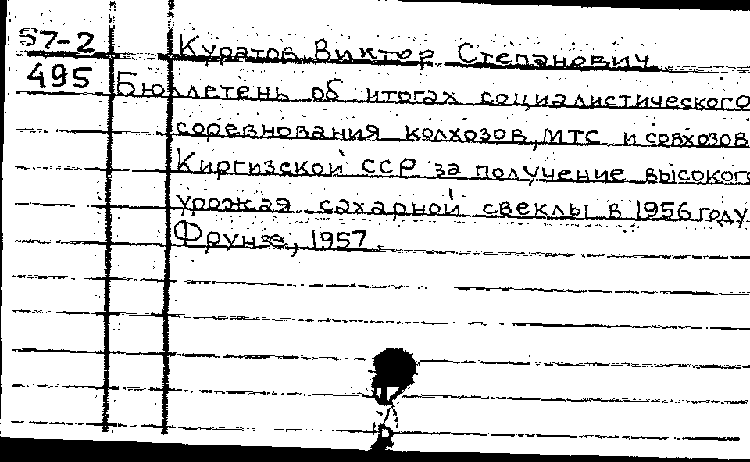 57-2 Куратов Виктор Степанович
495 Бюллетень об итогах социалистического
соревнования колхозов, МТС и совхозов
Киргизской ССР за получение высокого
урожая сахарной свеклы в 1956 году
Фрунзе, 1957.